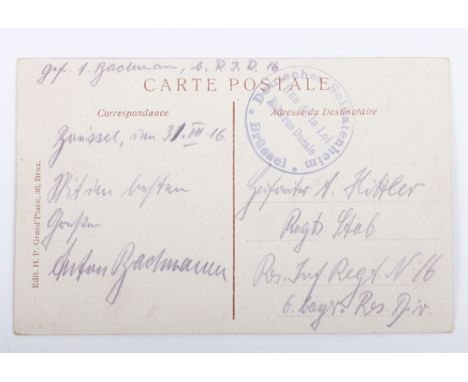 Gef. A. Bachmann, b. R.I.R. 16
CARTE POSTALE
Correspondance
Adresse du Destinataire
Deutsches Soldatenheim
Brüssel
Rue de la Loi
Brüssel, den 31. VII. 16.
Mit den besten
Grüßen
Anton Bachmann
Gefreiter A. Hittler
Regts Stab
Res. Inf Regt N 16
6. bayr. Res Div
Edit. H. P. Grand'Place, 30, Brux.